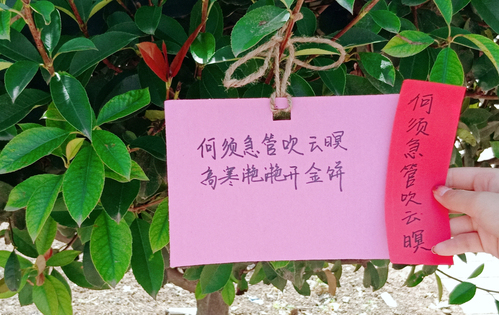 何须急管吹云暝
高寒滟滟开金饼
何须急管吹云暝